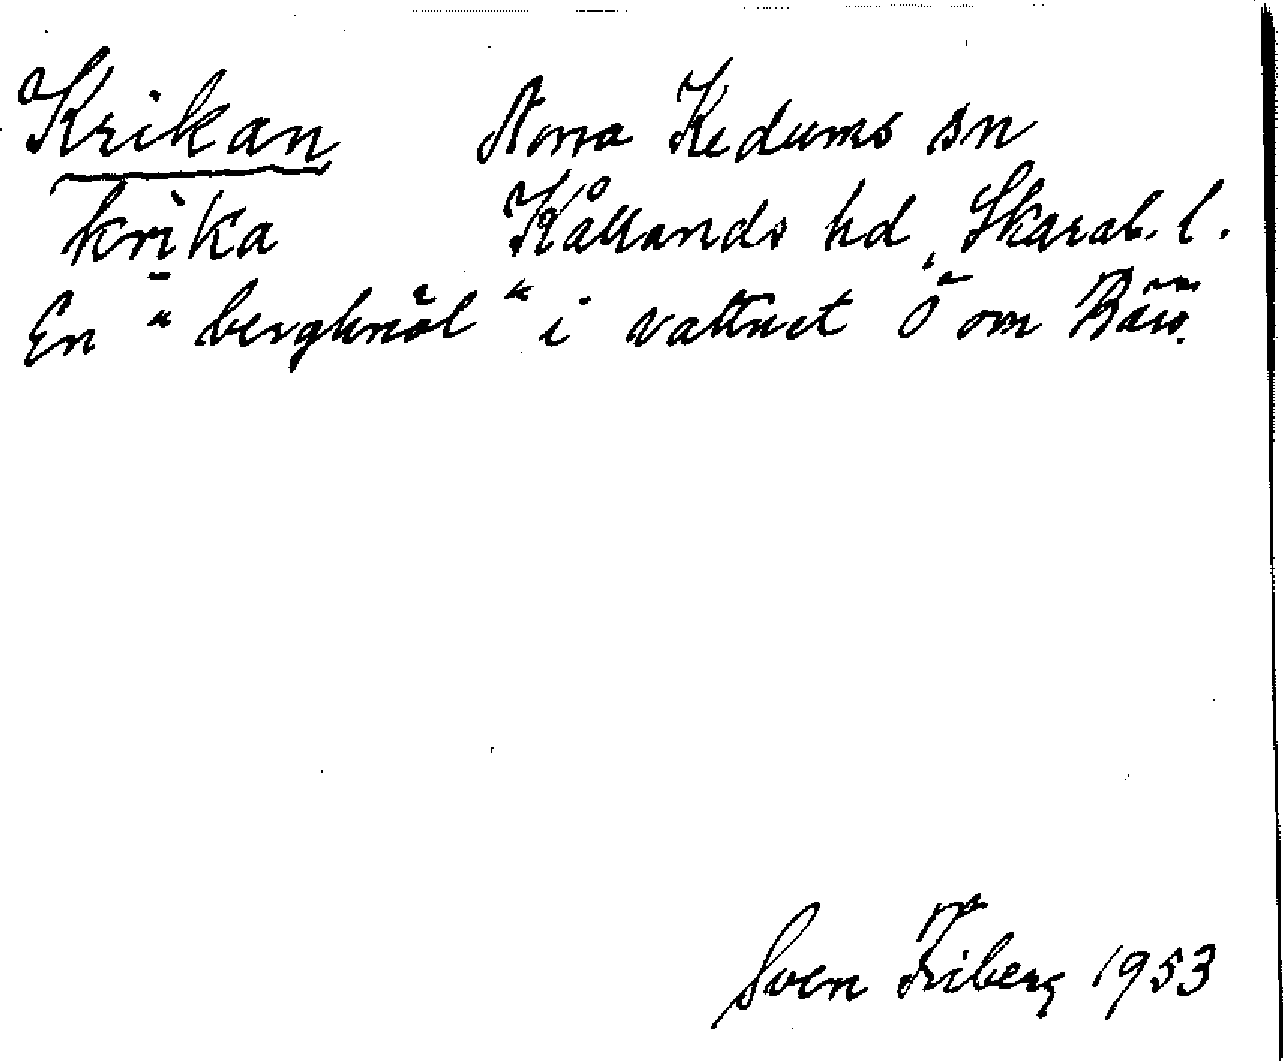 Krikan Norra Kedums sn
krìka Kållands hd, Skarab. l.
En "bergknöl" i vattnet Ö om
Sven Friberg 1953